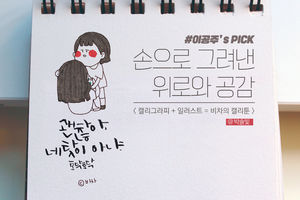 #이공주's PICK
손으로 그려낸
위로와 공감
( 캘리그라피 + 일러스트 = 비차의 캘리툰 )
@박솔빛
괜찮아,
네 탓이 아냐
토닥토닥
ⓒ비차